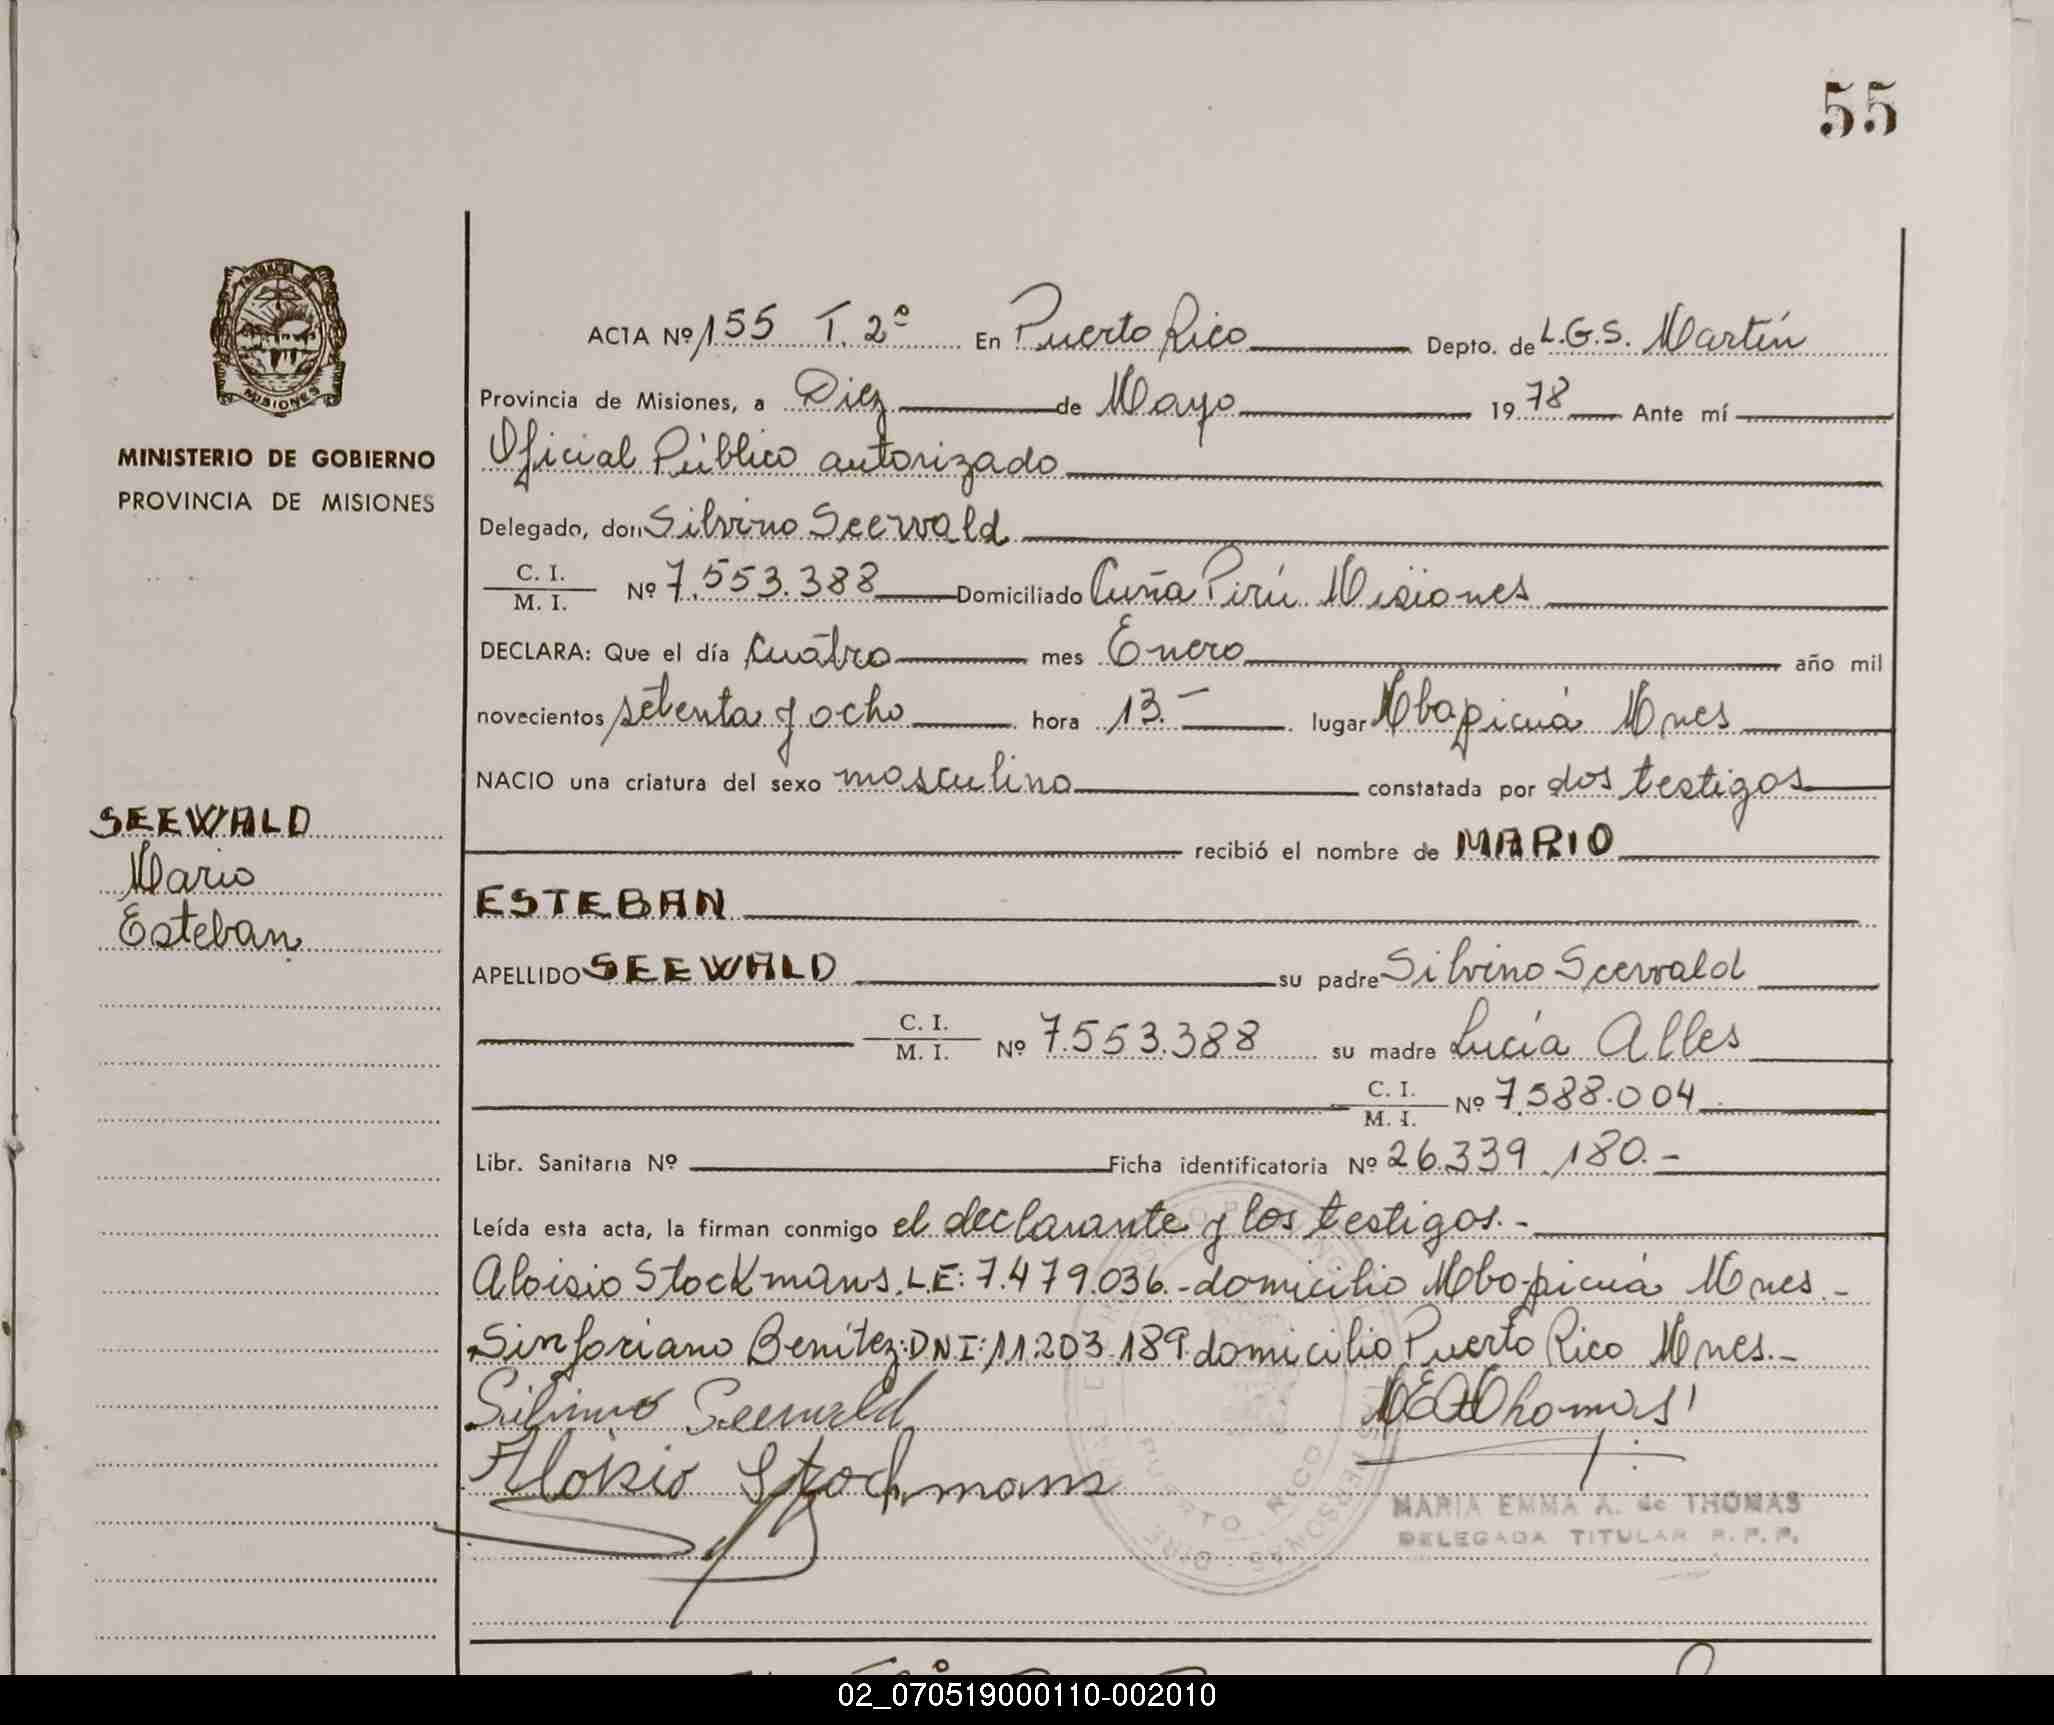 55
ACTA Nº 155 T. 2º En Puerto Rico Depto. de L.G.S. Martín
Provincia de Misiones, a Diez de Mayo 1978 Ante mí
Oficial Público autorizado
MINISTERIO DE GOBIERNO
PROVINCIA DE MISIONES
Delegado, don Silvino Seewald
C. I.
M. I. Nº 7.553.388 Domiciliado Cuña Pirú Misiones
DECLARA: Que el día cuátro mes Enero año mil
novecientos setenta y ocho hora 13.- lugar Mbopicuá Mnes
NACIO una criatura del sexo masculino constatada por dos testigos
recibió el nombre de MARIO
ESTEBAN
SEEWALD
Mario
Esteban
APELLIDO SEEWALD su padre Silvino Seewald
C. I.
M. I. Nº 7.553.388 su madre Lucía Alles
C. I.
M. I. Nº 7.588.004
Libr. Sanitaria Nº Ficha identificatoria Nº 26.339.180.-
Leída esta acta, la firman conmigo el declarante y los testigos.-
Aloisio Stockmans. L.E: 7.479.036.- domicilio Mbopicuá Mnes.-
Sinforiano Benítez: DNI: 11.203.189 domicilio Puerto Rico Mnes.-
Silvino Seewald
MEAThomas
Aloisio Stockmans
MARIA EMMA A. de THOMAS
DELEGADA TITULAR R. P. P.
PUERTO RICO
MISIONES
02_070519000110-002010